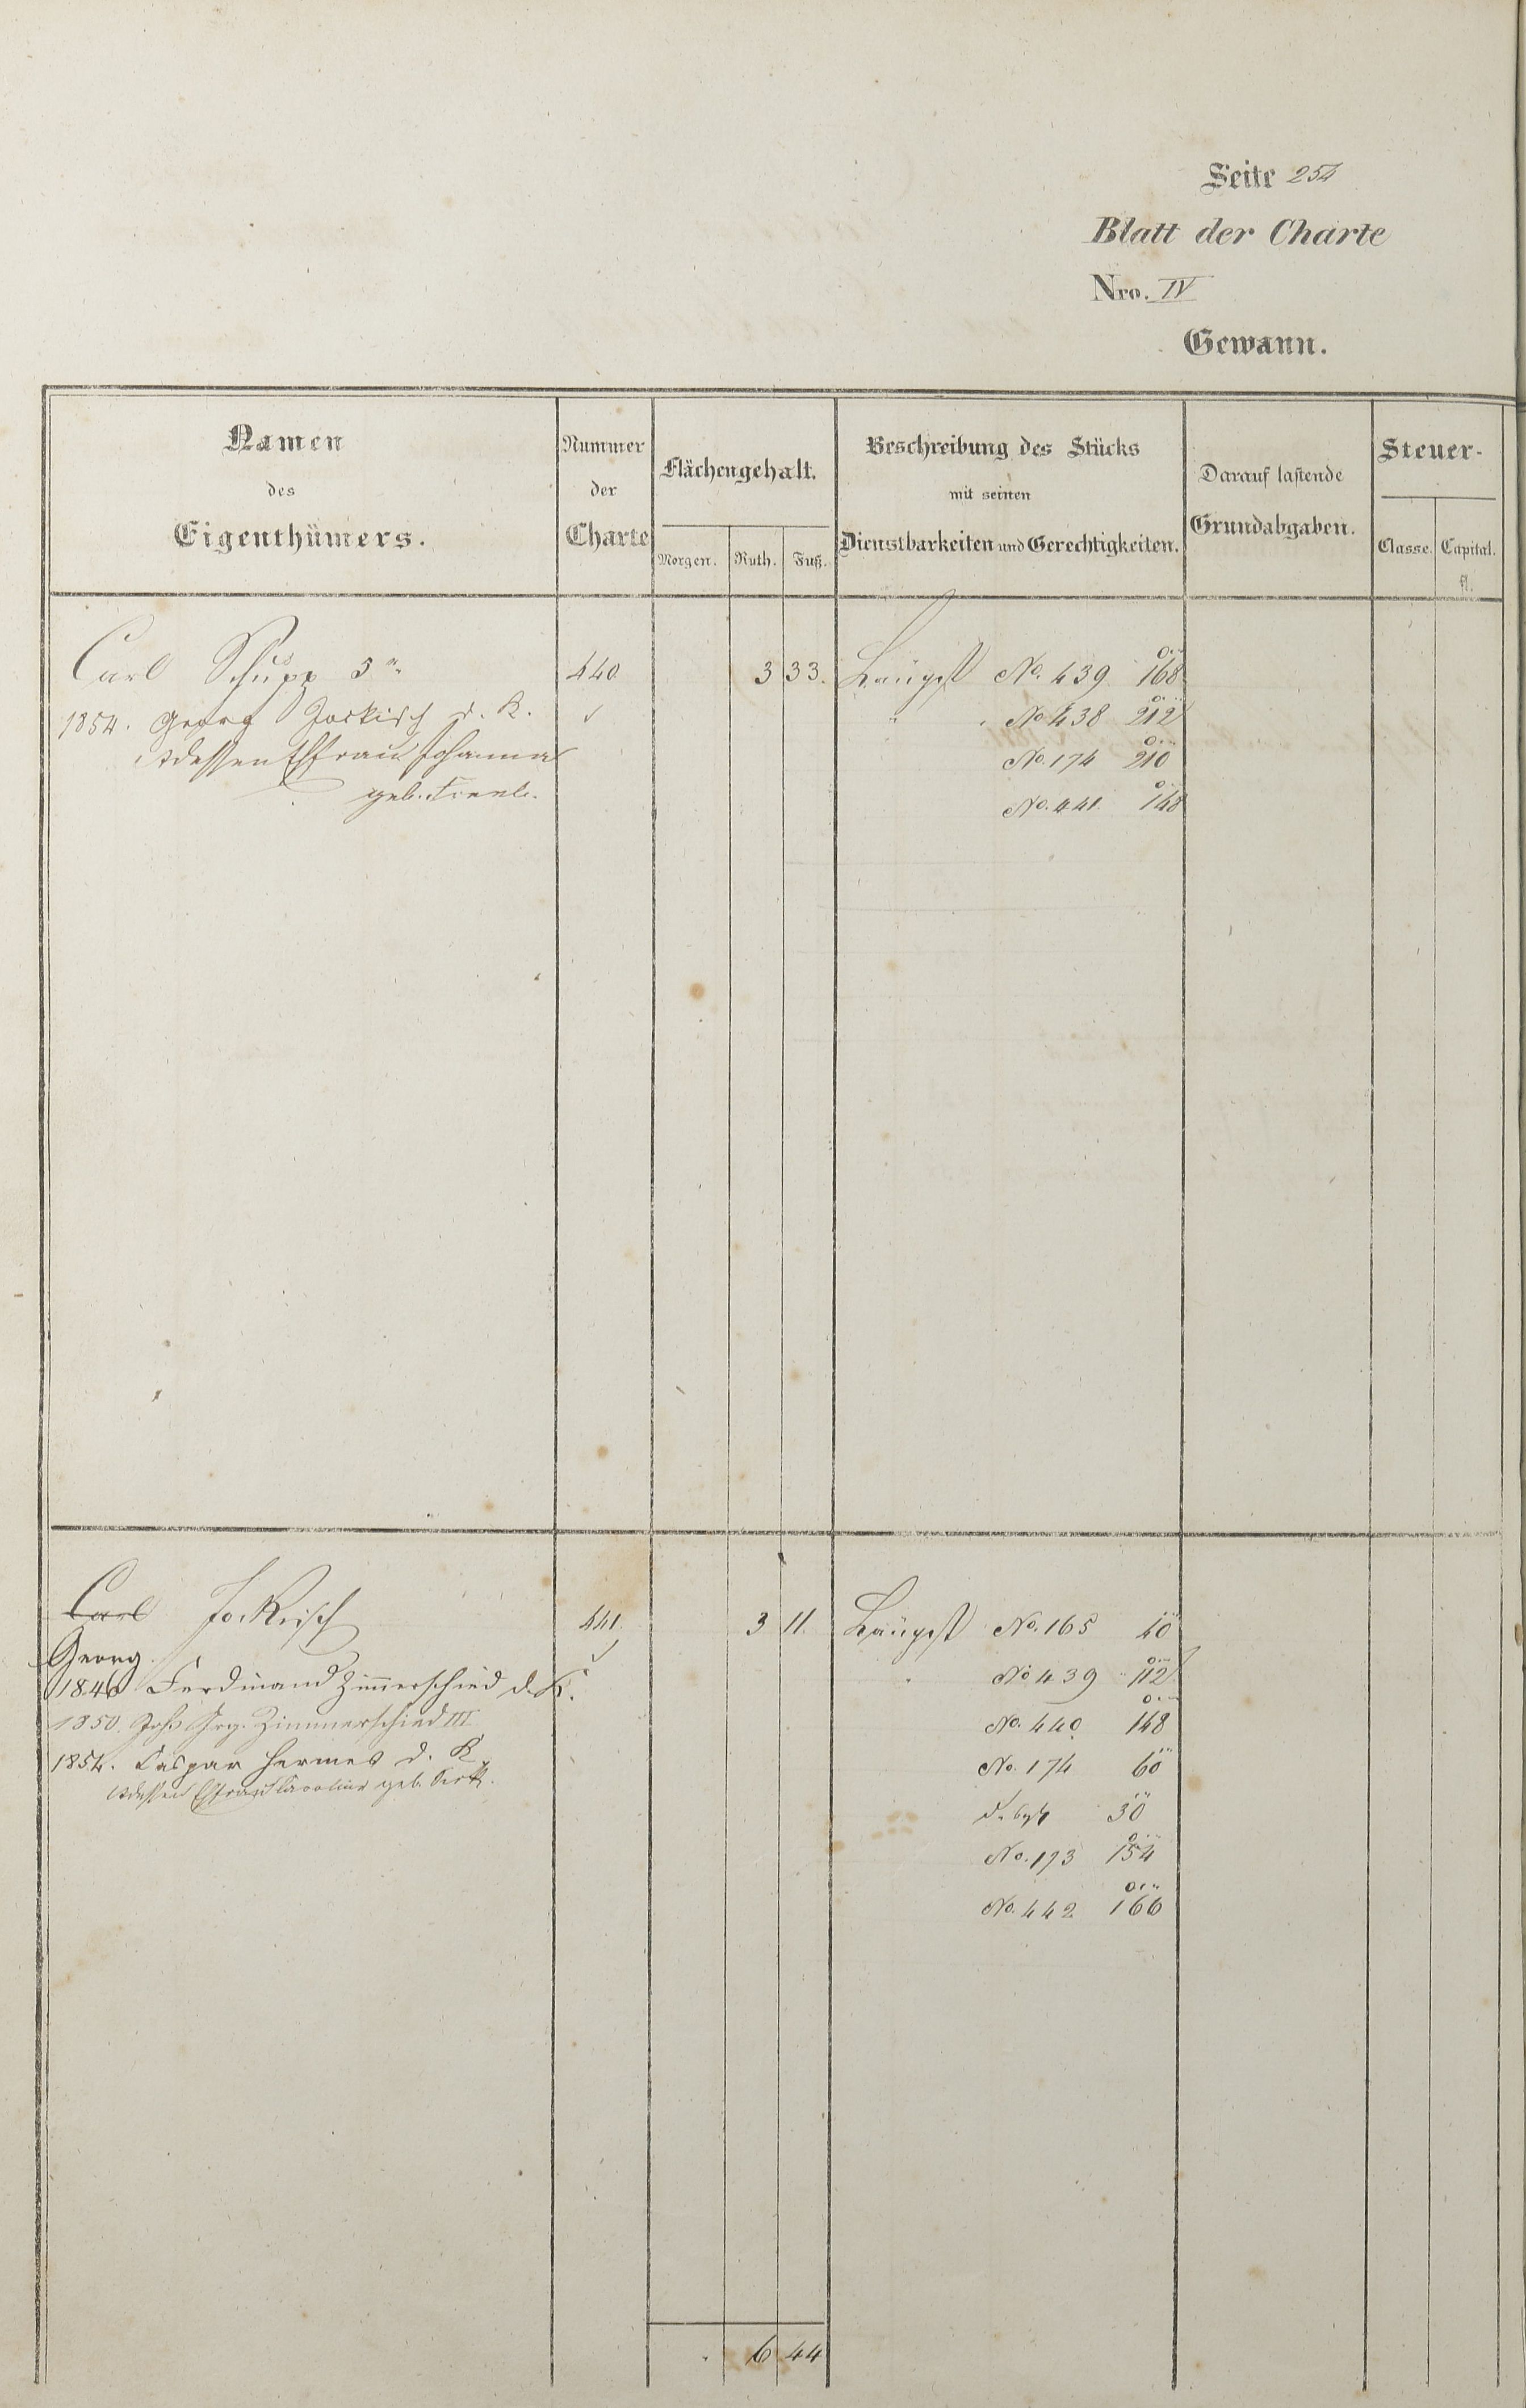 Seite 254
Blatt der Charte
Nro. IV
Gewann.
Namen
des
Eigenthümers.
Nummer
der
Charte
Flächengehalt.
Morgen. Ruth. Fuß.
Beschreibung des Stücks
mit seinen
Dienstbarkeiten und Gerechtigkeiten.
Darauf lastende
Grundabgaben.
Steuer-
Classe. Capital.
fl.
Carl Schupp 3r 440. 3 33. Längst No. 439 168
1854. Georg Jockisch d. K. No. 438 212
dessen Ehfrau Johanna No. 174 210
geb. No. 441. 148
Carl Jockisch 441. 3 11. Längst No. 165 40
Georg
1846 Ferdinand Zim̅erschied d. K. No. 439 112
1850. Johs Grg. Zimmerschied III No. 440. 148
1854. Caspar Hermes d. K. No. 174 60
dessen Ehfrau Caroline geb. 30
No. 173 154
No. 442 166
6 44